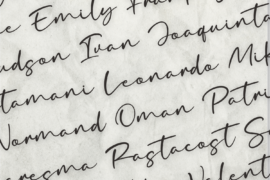 e Emily Fran
udson Ivan Joaquinta
tamani Leonardo Mik
Normand Oman Patri
aresma Rastacost S
Valent